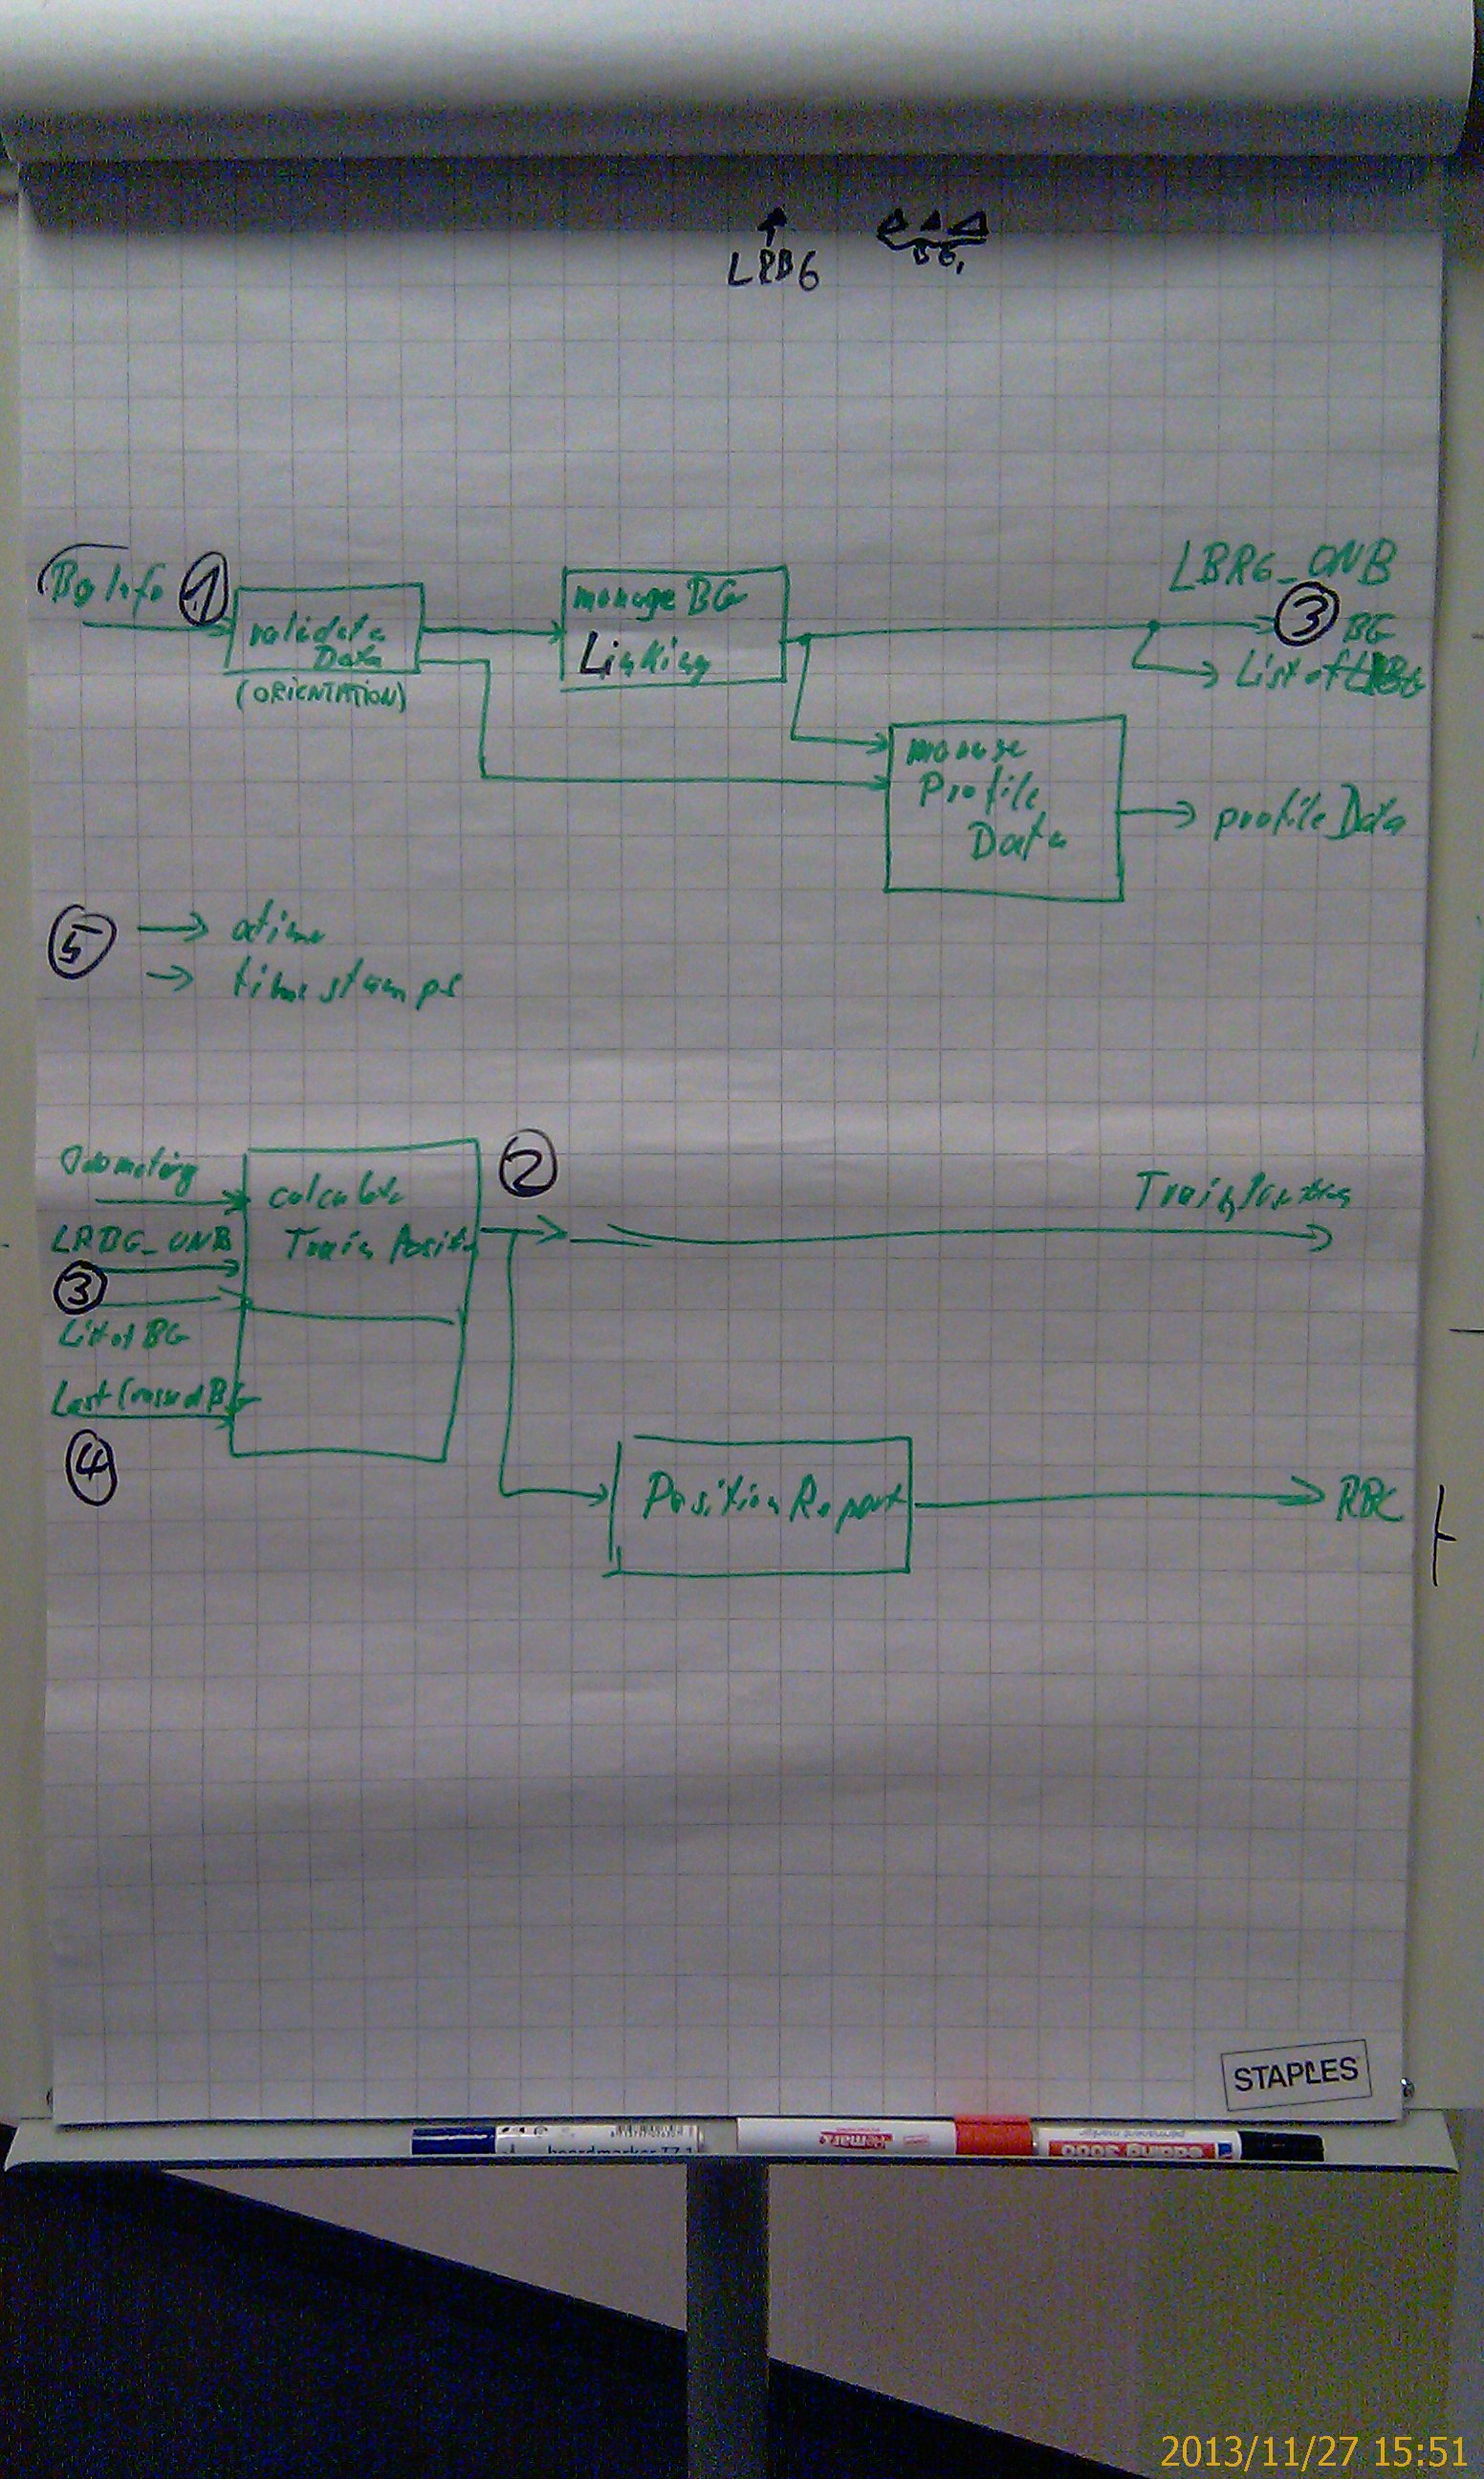 LRBG
BG,
Bg Info
1
validate
Data
(ORIENTATION)
manage BG
Linking
LBRG_ONB
3
BG
List of
manage
Profile
Data
profile Data
5
timestamps
Odometry
LRBG_ONB
3
List of BG
Last Crossed BG
4
calculate
Train Positi
2
TrainPosition
Position Report
RBC
STAPLES
boardmarker
edding 3000
permanent marker
2013/11/27 15:51